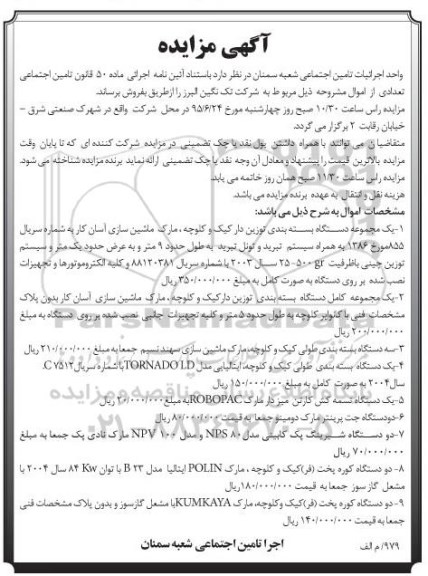 آگهی مزایده
واحد اجرائیات تامین اجتماعی شعبه سمنان در نظر دارد باستناد آئین نامه اجرائی ماده ۵۰ قانون تامین اجتماعی
تعدادی از اموال مشروحه ذیل مربوط به شرکت تک نگین البرز را ازطریق بفروش برساند.
مزایده راس ساعت ۱۰/۳۰ صبح روز چهارشنبه مورخ ۹۵/۶/۲۴ در محل شرکت واقع در شهرک صنعتی شرق -
خیابان رقابت ۲ برگزار می گردد.
متقاضیان می توانند با همراه داشتن پول نقد یا چک تضمینی در مزایده شرکت کننده ای که تا پایان وقت
مزایده بالاترین قیمت را پیشنهاد و معادل آن وجه نقد یا چک تضمینی ارائه نماید برنده مزایده شناخته می شود.
مزایده راس ساعت ۱۱/۳۰ صبح همان روز خاتمه می یابد.
هزینه نقل و انتقال به عهده برنده مزایده می باشد.
مشخصات اموال به شرح ذیل می باشد:
۱-یک مجموعه دستگاه بسته بندی توزین دار کیک و کلوچه ، مارک ماشین سازی آسان کار به شماره سریال
۸۵۵مورخ ۱۳۸۶ به همراه سیستم تبرید و تونل تبرید به طول حدود ۹ متر و به عرض حدود یک متر و سیستم
توزین چینی باظرفیت ۵۰۰-۲۵ gr سال ۲۰۰۳ با شماره سریال ۸۸۱۲۰۳۸۱ و کلیه الکتروموتورها و تجهیزات
نصب شده بر روی دستگاه به صورت کامل به مبلغ ۳۵۰/۰۰۰/۰۰۰ ریال
۲-یک مجموعه کامل دستگاه بسته بندی توزین دارکیک و کلوچه ، مارک ماشین سازی آسان کار بدون پلاک
مشخصات فنی با کانوایر کلوچه به طول حدود ۵ متر و کلیه تجهیزات جانبی نصب شده بر روی دستگاه به مبلغ
۲۰۰/۰۰۰/۰۰۰ ریال
۳-سه دستگاه بسته بندی طولی کیک و کلوچه مارک ماشین سازی سهند نسیم جمعا به مبلغ ۲۱۰/۰۰۰/۰۰۰ ریال
۴-یک دستگاه بسته بندی طولی کیک و کلوچه، ایتالیایی مدل TORNADO I.D با شماره سریال C.۷۵۱۲
سال ۲۰۰۴ به صورت کامل به مبلغ ۱۵۰/۰۰۰/۰۰۰ ریال
۵-یک دستگاه تسمه کش کارتن میز دار مارک ROBOPAC به مبلغ ۲۰/۰۰۰/۰۰۰ ریال
۶-دودستگاه جت پرینتر مارک دومینو جمعا به قیمت ۸۰/۰۰۰/۰۰۰ ریال
۷-دو دستگاه شیرینگ پک کابینی مدل NPS ۸۰ و مدل NPV ۱۰۰ مارک نادی پک جمعا به مبلغ
۷۰/۰۰۰/۰۰۰ ریال
۸- دو دستگاه کوره پخت (فر)کیک و کلوچه ، مارک POLIN ایتالیا مدل B ۲۳ با توان ۸۴ Kw سال ۲۰۰۴ با
مشعل گاز سوز جمعا به قیمت ۱۸۰/۰۰۰/۰۰۰ریال
۹- دو دستگاه کوره پخت (فر)کیک وکلوچه، مارک KUMKAYA با مشعل گازسوز و بدون پلاک مشخصات فنی
جمعا به قیمت ۱۴۰/۰۰۰/۰۰۰ ریال
۹۷۹/ م الف
اجرا تامین اجتماعی شعبه سمنان